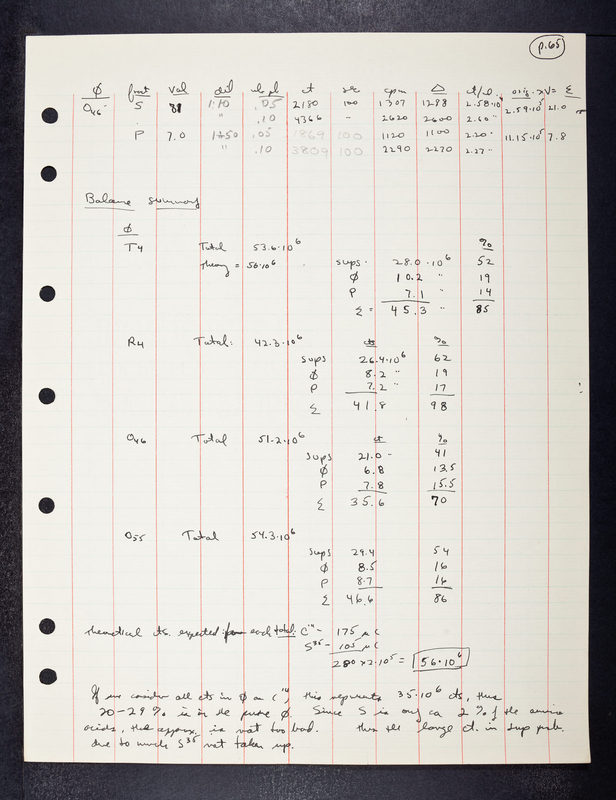 p.65
ϕ fract vol dil vol pl ct sec cpm Δ ct/ml orig. x V = Σ
O46 S 81 1:10 .05 2180 100 1307 1288 2.58·10 2.59·10⁵ 21.0
" .10 4366 " 2620 2600 2.60"
P 7.0 1:50 .05 1869 100 1120 1100 2.20" 11.15·10⁵ 7.8
" .10 3809 100 2290 2270 2.27"
Balance summary
ϕ
T4 Total 53.6·10⁶ %
Theory = 56·10⁶ sups· 28.0·10⁶ 52
ϕ 10.2 " 19
P 7.1 " 14
Σ = 45.3 " 85
R4 Total: 42.3·10⁶ cts %
sups 26.4·10⁶ 62
ϕ 8.2 " 19
P 7.2 " 17
Σ 41.8 98
O46 Total 51.2·10⁶ ct %
sups 21.0 - 41
ϕ 6.8 13.5
P 7.8 15.5
Σ 35.6 70
O55 Total 54.3·10⁶
sups 29.4 54
ϕ 8.5 16
P 8.7 16
Σ 46.6 86
Theoretical cts. expected from each total: C¹⁴ - 175 μC
S³⁵ - 105 μC
280 x 2·10⁵ = 56·10⁶
If we consider all cts in ϕ as C¹⁴, this represents 35·10⁶ cts, thus
20-29% is in the pure ϕ. Since S is only ca 2% of the amino
acids, this approx. is not too bad. Thus the large ct. in sup prob.
due to much S³⁵ not taken up.